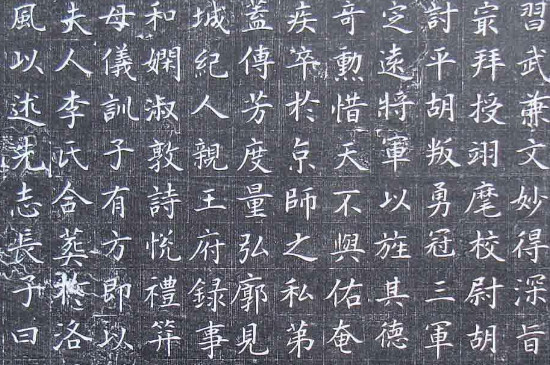 習武兼文妙得深旨
㝡拜授翊麾校尉胡
討平胡叛勇冠三軍
定遠將軍以旌其德
奇勳惜天不與佑奄
疾卒於京師之私第
蓋傳芳度量弘廓見
城紀人親王府錄事
和嫻淑敦詩悅禮笄
母儀訓子有方即以
夫人李氏合葬於洛
風以述先志長子曰